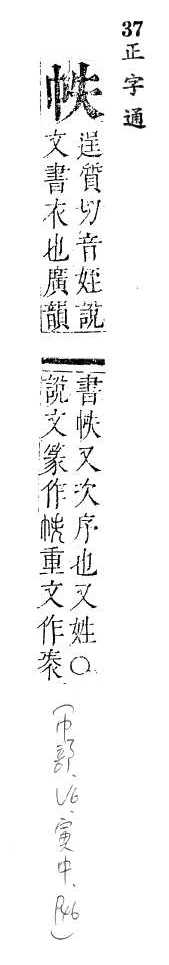 37正字通
帙
逞質切音姪說
文書衣也廣韻
書帙又次序也又姓○
說文篆作帙重文作袠
(巾部、寅中、P46)